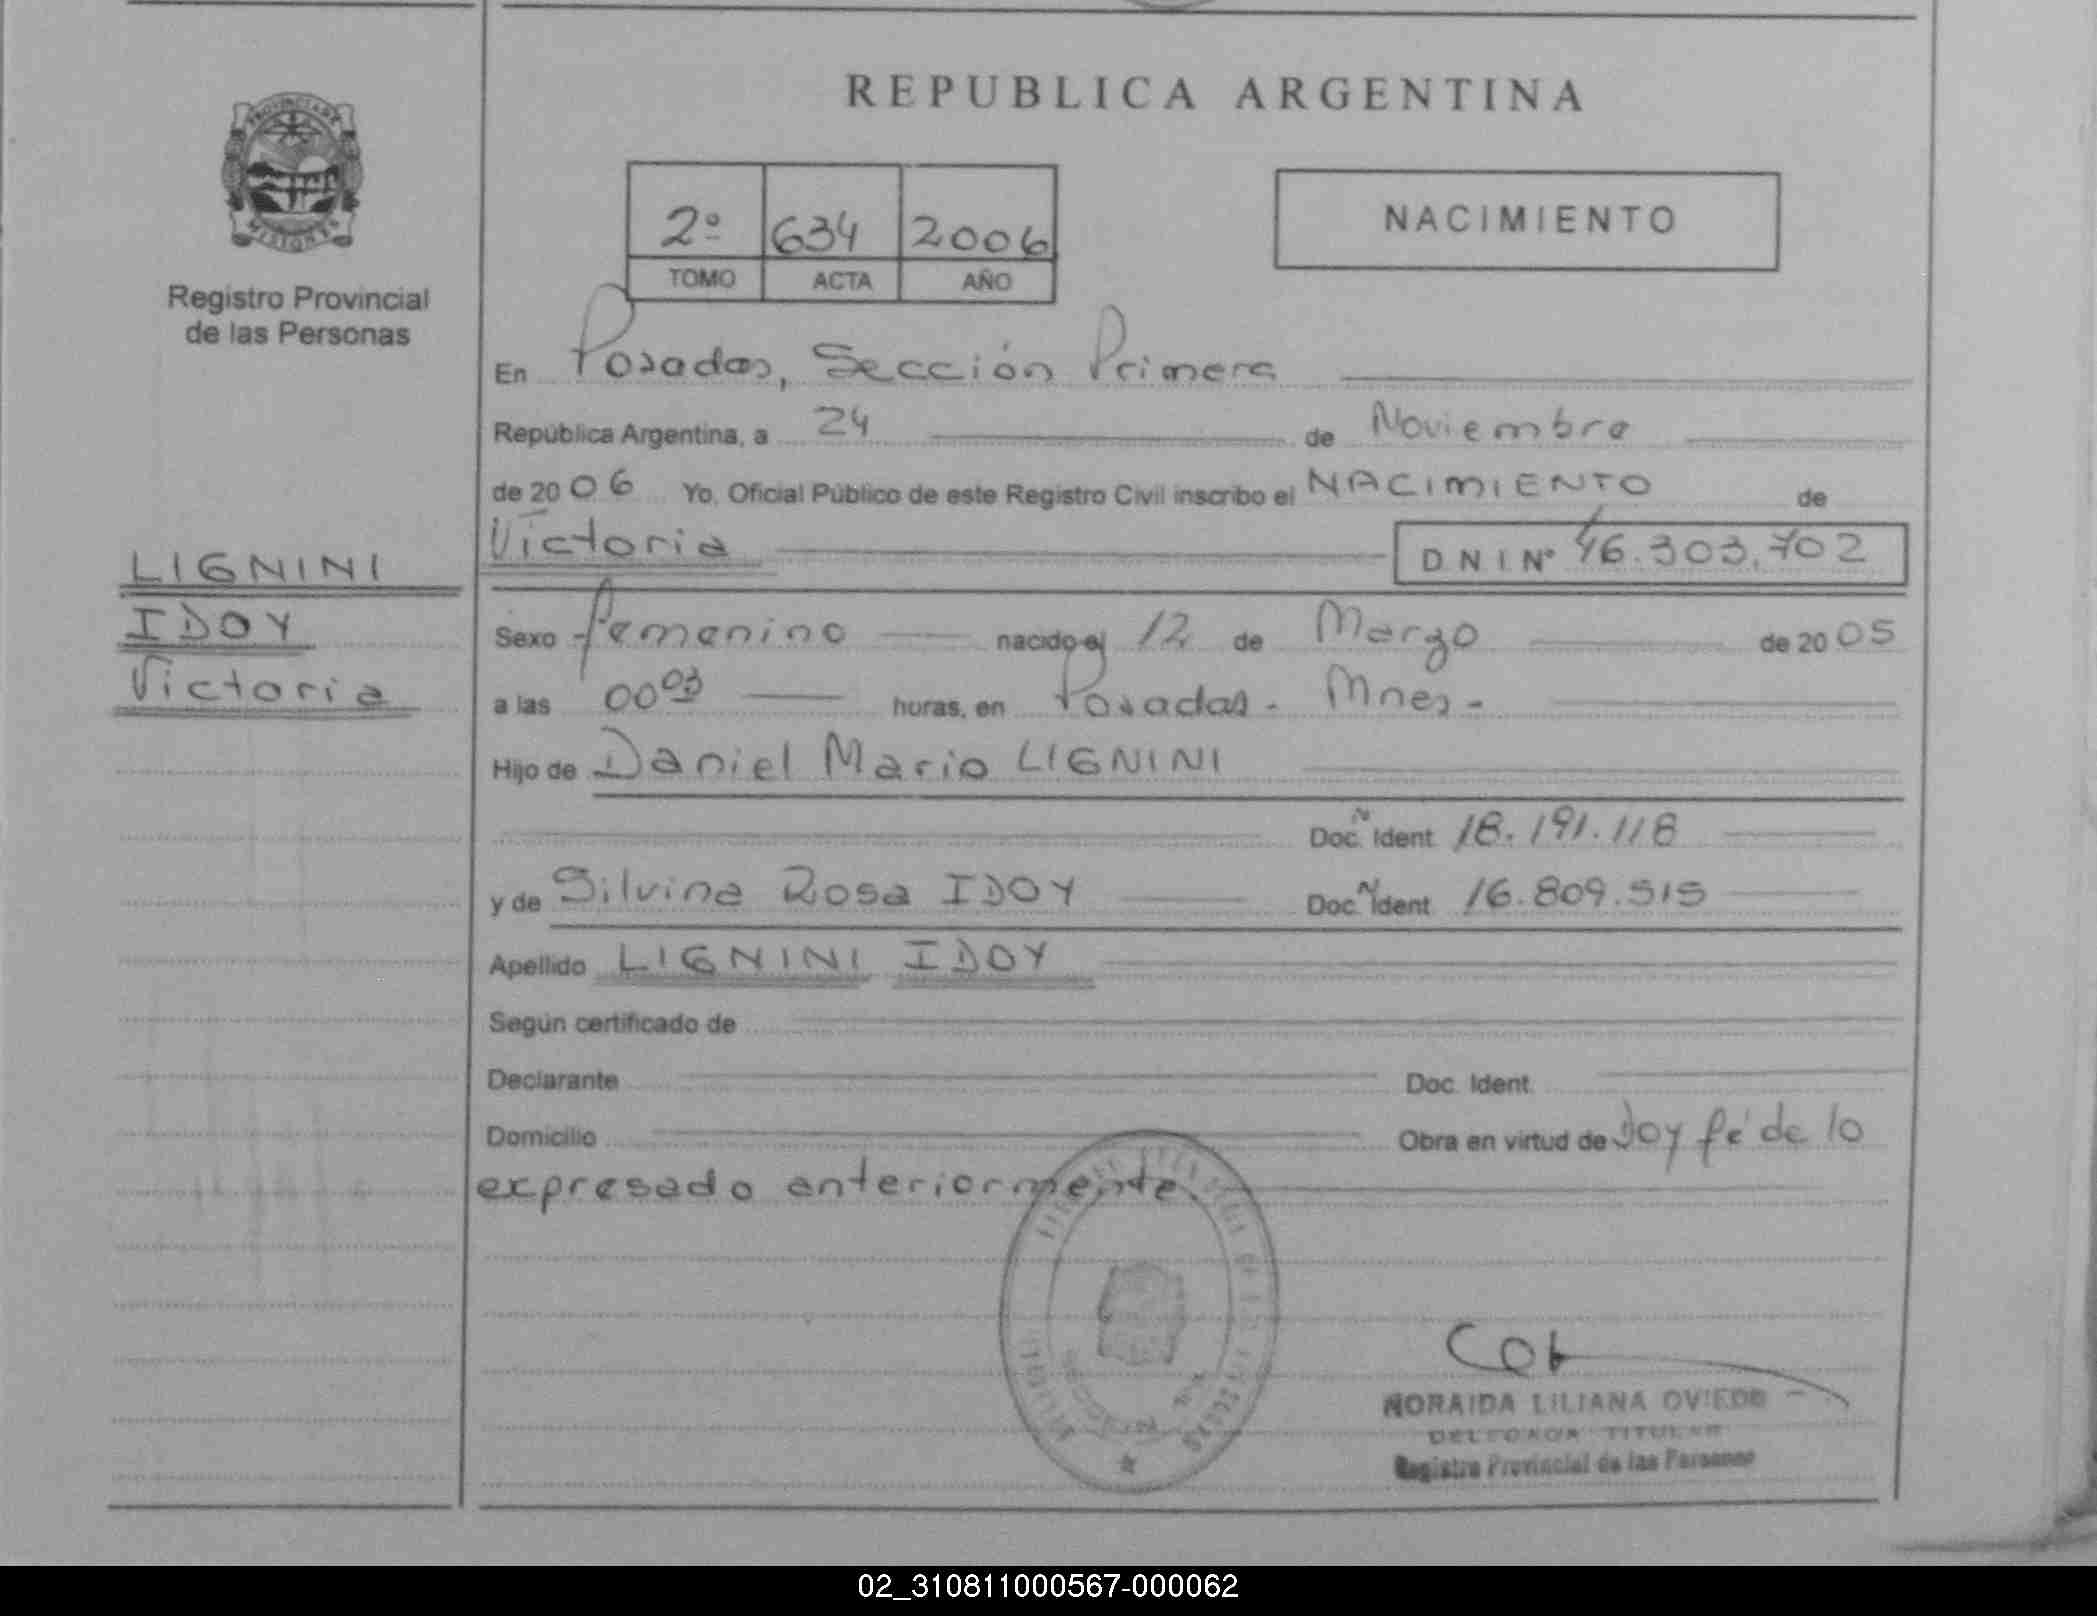 REPUBLICA ARGENTINA
PROVINCIA DE
MISIONES
Registro Provincial
de las Personas
2º 634 2006
TOMO ACTA AÑO
NACIMIENTO
En Posadas, Sección Primera
República Argentina, a 24 de Noviembre
de 2006 Yo, Oficial Público de este Registro Civil inscribo el NACIMIENTO de
Victoria DNI Nº 46.303.702
LIGNINI
IDOY
Victoria
Sexo femenino nacido el 12 de Marzo de 2005
a las 00 03 huras, en Posadas - Mnes -
Hijo de Daniel Mario LIGNINI
Doc. N Ident 18.191.118
y de Silvina Rosa IDOY Doc. N Ident 16.809.515
Apellido LIGNINI IDOY
Según certificado de
Declarante Doc. Ident.
Domicilio Obra en virtud de Doy fé de lo
expresado anteriormente
NORAIDA LILIANA OVIEDO
DELEGADA TITULAR
Registro Provincial de las Personas
02_310811000567-000062